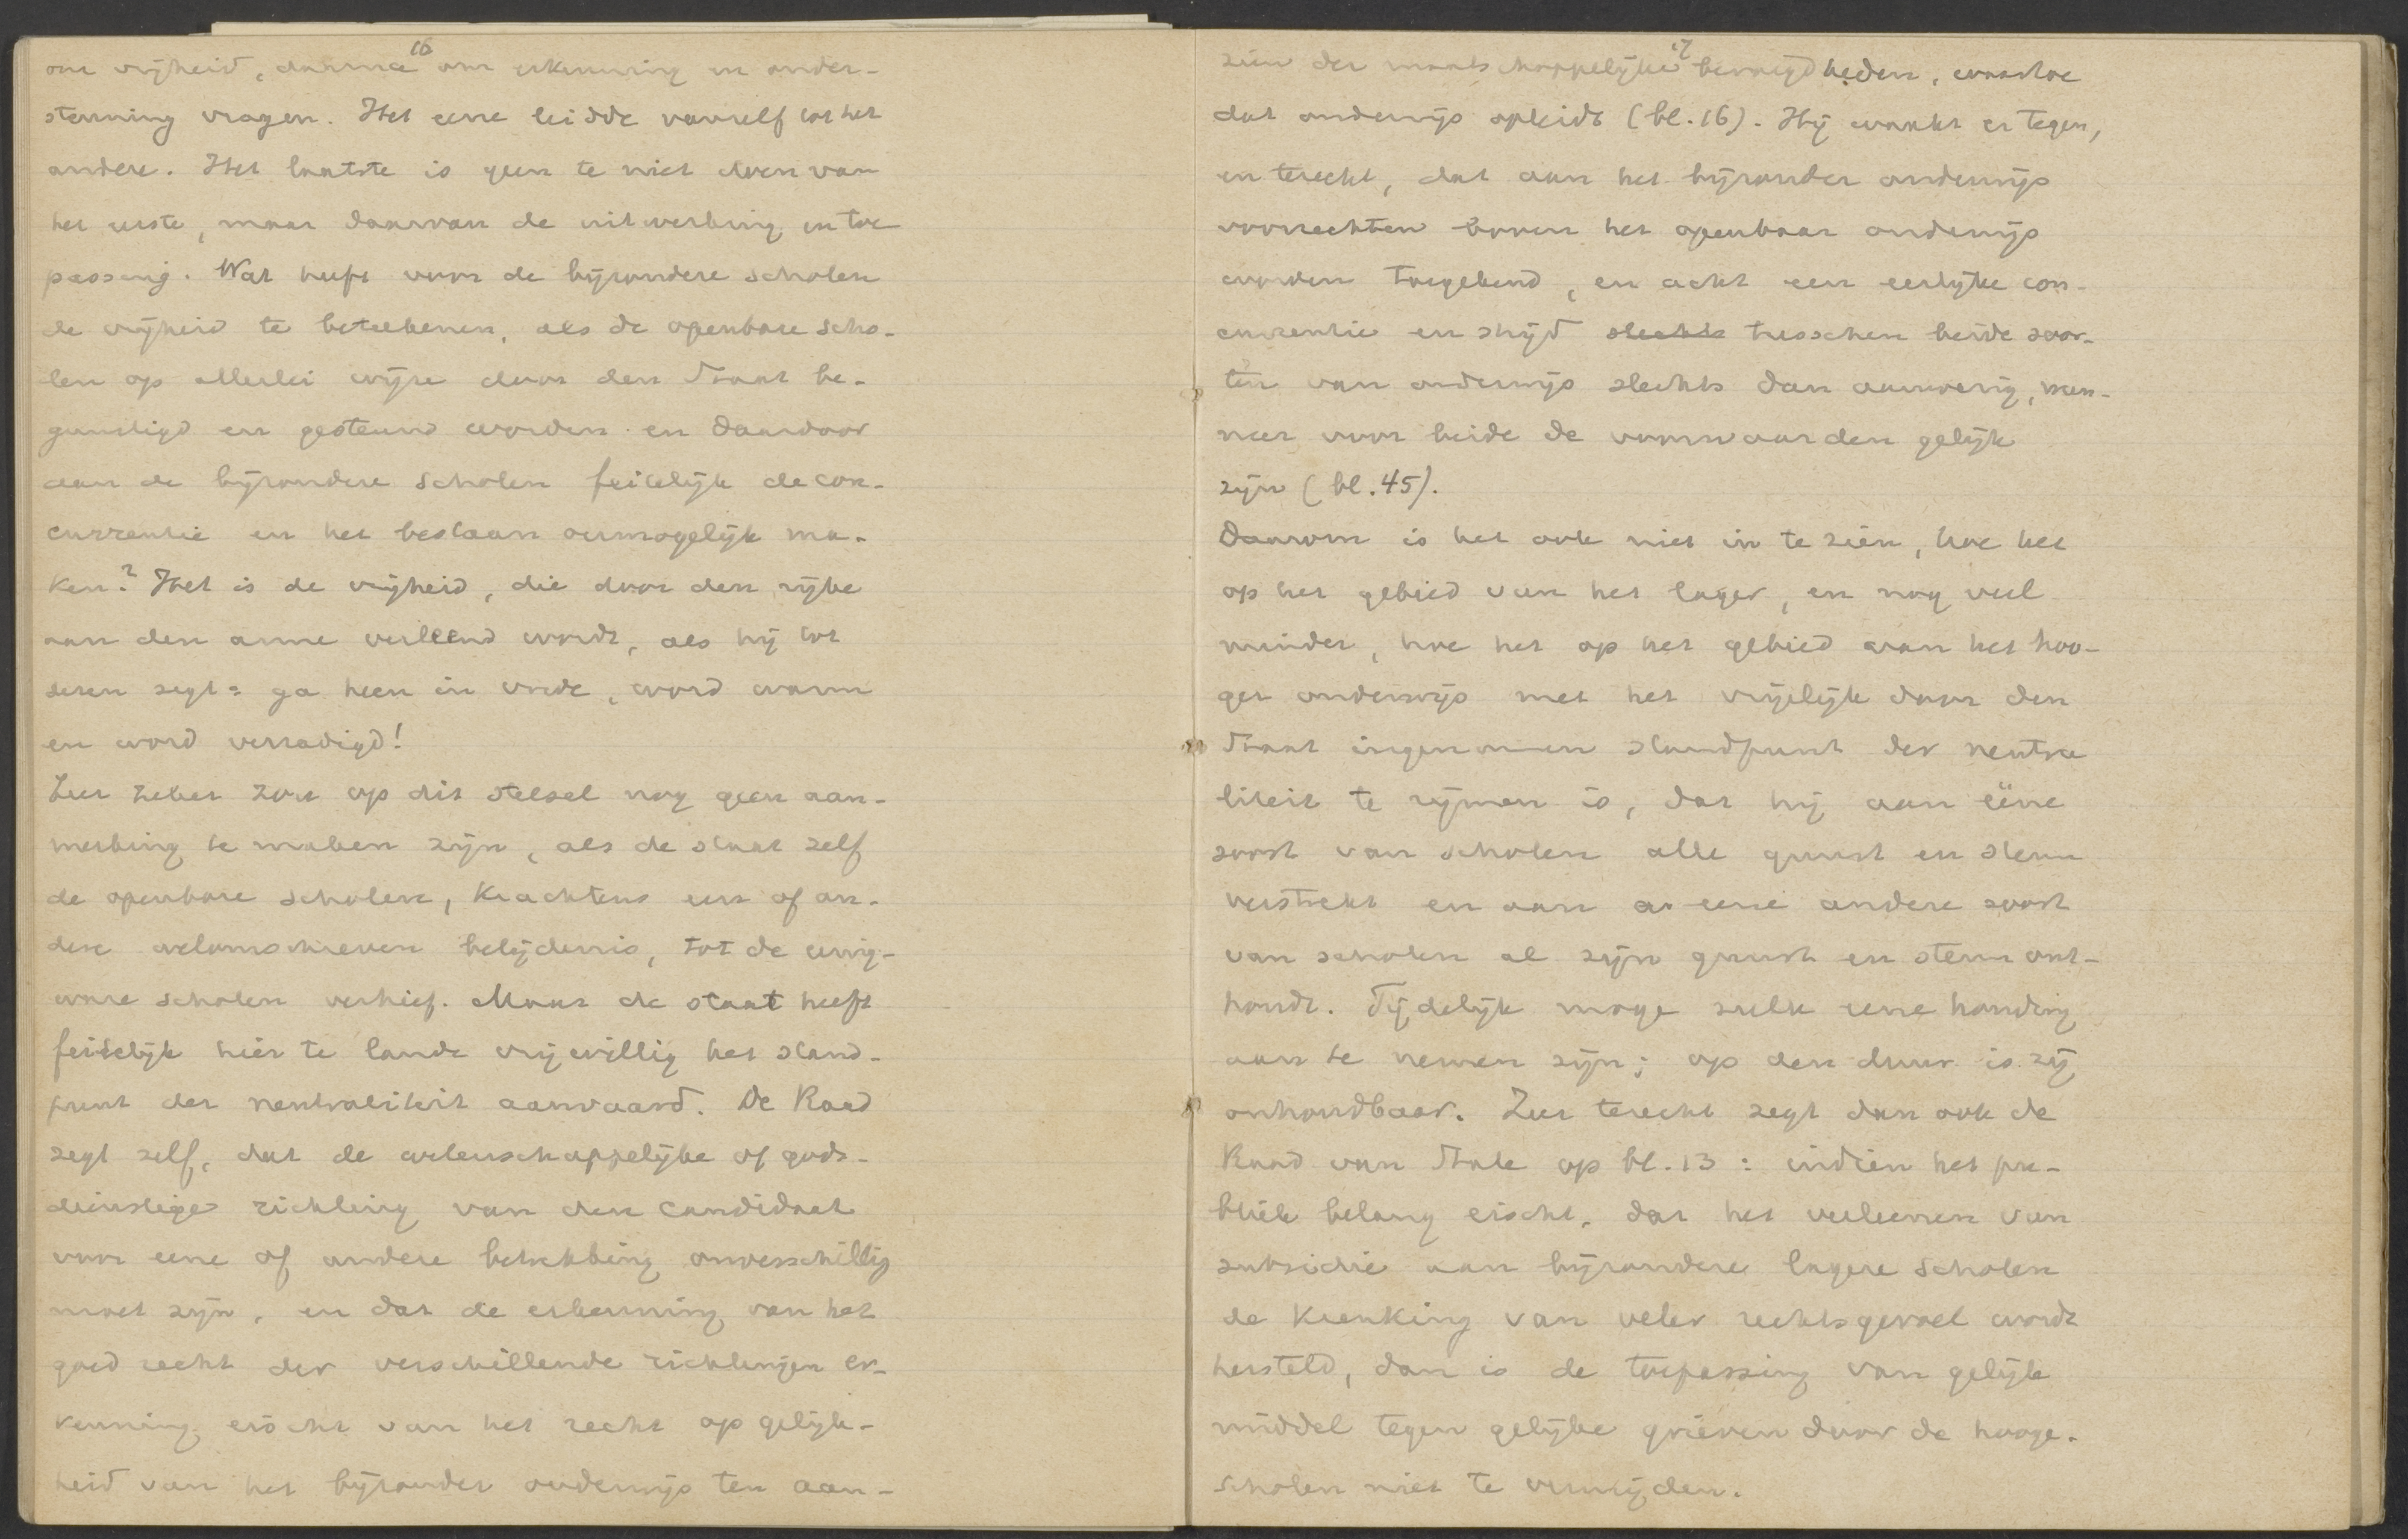 16
om vrijheid, daarna om erkenning en onder-
steuning vragen. Het eene leidde vanzelf tot het
andere. Het laatste is geen te niet doen van
het eerste, maar daarvan de uitwerking en toe
passing. Wat heeft voor de bijzondere scholen
de vrijheid te beteekenen, als de openbare scho-
len op allerlei wijze door den Staat be-
gunstigd en gesteund worden en daardoor
aan de bijzondere scholen feitelijk de con-
currentie en het bestaan onmogelijk ma-
ken? Het is de vrijheid, die door den rijke
aan den arme verleend wordt, als hij tot
dezen zegt: ga heen in vrede, word warm
en word verzadigd!
Zeer zeker zou op dit stelsel nog geen aan-
merking te maken zijn, als de staat zelf
de openbare scholen, krachtens een of an-
dere welomschreven belijdenis, tot de eenig-
ware scholen verhief. Maar de staat heeft
feitelijk hier te lande vrijwillig het stand-
punt der neutraliteit aanvaard. De Raad
zegt zelf, dat de wetenschappelijke of gods-
dienstige richting van den candidaat
voor eene of andere betrekking onverschillig
moet zijn, en dat de erkenning van het
goed recht der verschillende richtingen er-
kenning eischt van het recht op gelijk-
heid van het bijzonder onderwijs ten aan-
17
zien der maatschappelijke bevoegdheden, waartoe
dat onderwijs opleidt (bl. 16). Hij waakt er tegen,
en terecht, dat aan het bijzonder onderwijs
voorrechten boven het openbaar onderwijs
worden toegekend, en acht een eerlijke con-
currentie en strijd slechts tusschen beide soor-
ten van onderwijs slechts dan aanwezig, wan-
neer voor beide de voorwaarden gelijk
zijn (bl. 45).
Daarom is het ook niet in te zien, hoe het
op het gebied van het lager, en nog veel
minder, hoe het op het gebied van het hoo-
ger onderwijs met het vrijelijk door den
Staat ingenomen standpunt der neutra
liteit te rijmen is, dat hij aan ééne
soort van scholen alle gunst en steun
verstrekt en aan eene andere soort
van scholen al zijn gunst en steun ont-
houdt. Tijdelijk moge zulk eene houding
aan te nemen zijn; op den duur is zij
onhoudbaar. Zeer terecht zegt dan ook de
Raad van State op bl. 13: indien het pu-
bliek belang eischt, dat het verleenen van
subsidie aan bijzondere lagere scholen
de krenking van veler rechtsgevoel wordt
hersteld, dan is de toepassing van gelijk
middel tegen gelijke grieven door de hooge-
scholen niet te vermijden.